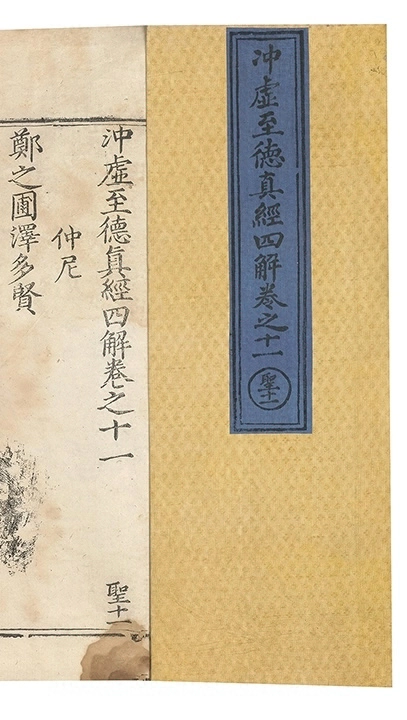 沖虛至德真經四解卷之十一
聖十一
沖虛至德真經四解卷之十一
聖十一
仲尼
鄭之圃澤多賢